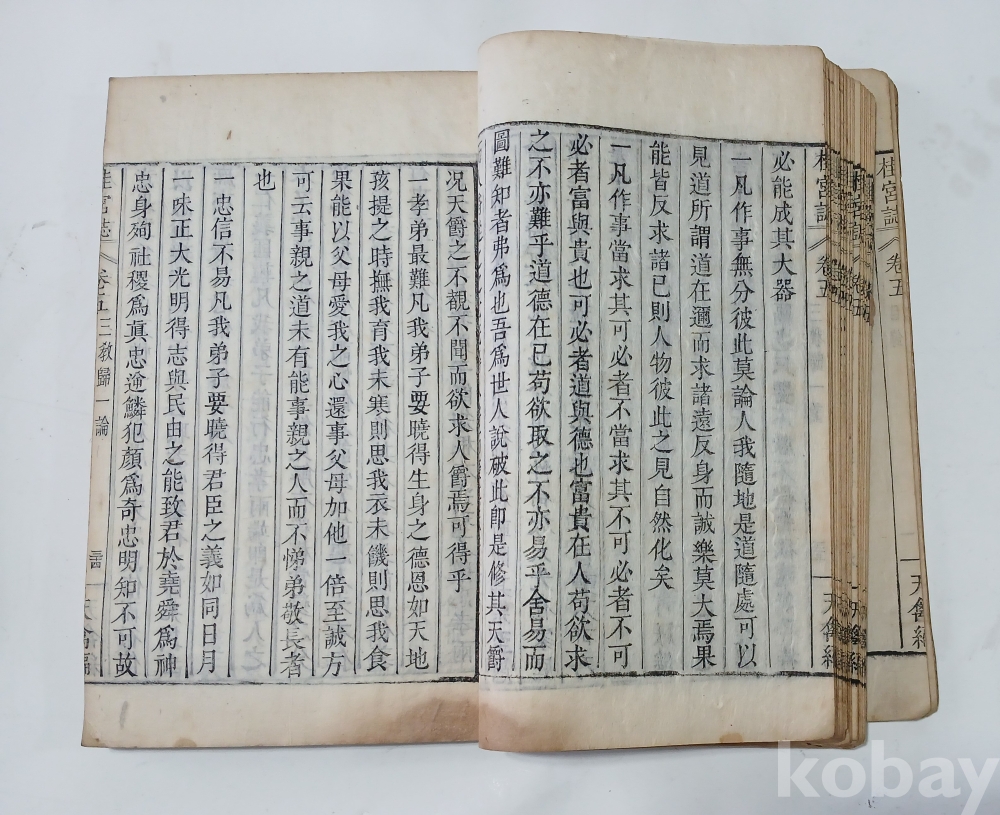 桂宮誌 卷五
天禽編
必能成其大器
一凡作事無分彼此莫論人我隨地是道隨處可以
見道所謂道在邇而求諸遠反身而誠樂莫大焉果
能皆反求諸已則人物彼此之見自然化矣
一凡作事當求其可必者不當求其不可必者不可
必者富與貴也可必者道與德也富貴在人苟欲求
之不亦難乎道德在已苟欲取之不亦易乎舍易而
圖難知者弗爲也吾爲世人說破此卽是修其天爵
况天爵之不覩不聞而欲求人爵焉可得乎
一孝弟最難凡我弟子要曉得生身之德恩如天地
孩提之時撫我育我未寒則思我衣未饑則思我食
果能以父母愛我之心還事父母加他一倍至誠方
可云事親之道未有能事親之人而不悌弟敬長者
也
一忠信不易凡我弟子要曉得君臣之義如同日月
一味正大光明得志與民由之能致君於堯舜爲神
忠身殉社稷爲眞忠逆鱗犯顏爲奇忠明知不可故
桂宮誌 卷五 三教歸一論 天禽編
桂宮誌 卷五
天禽編
kobay